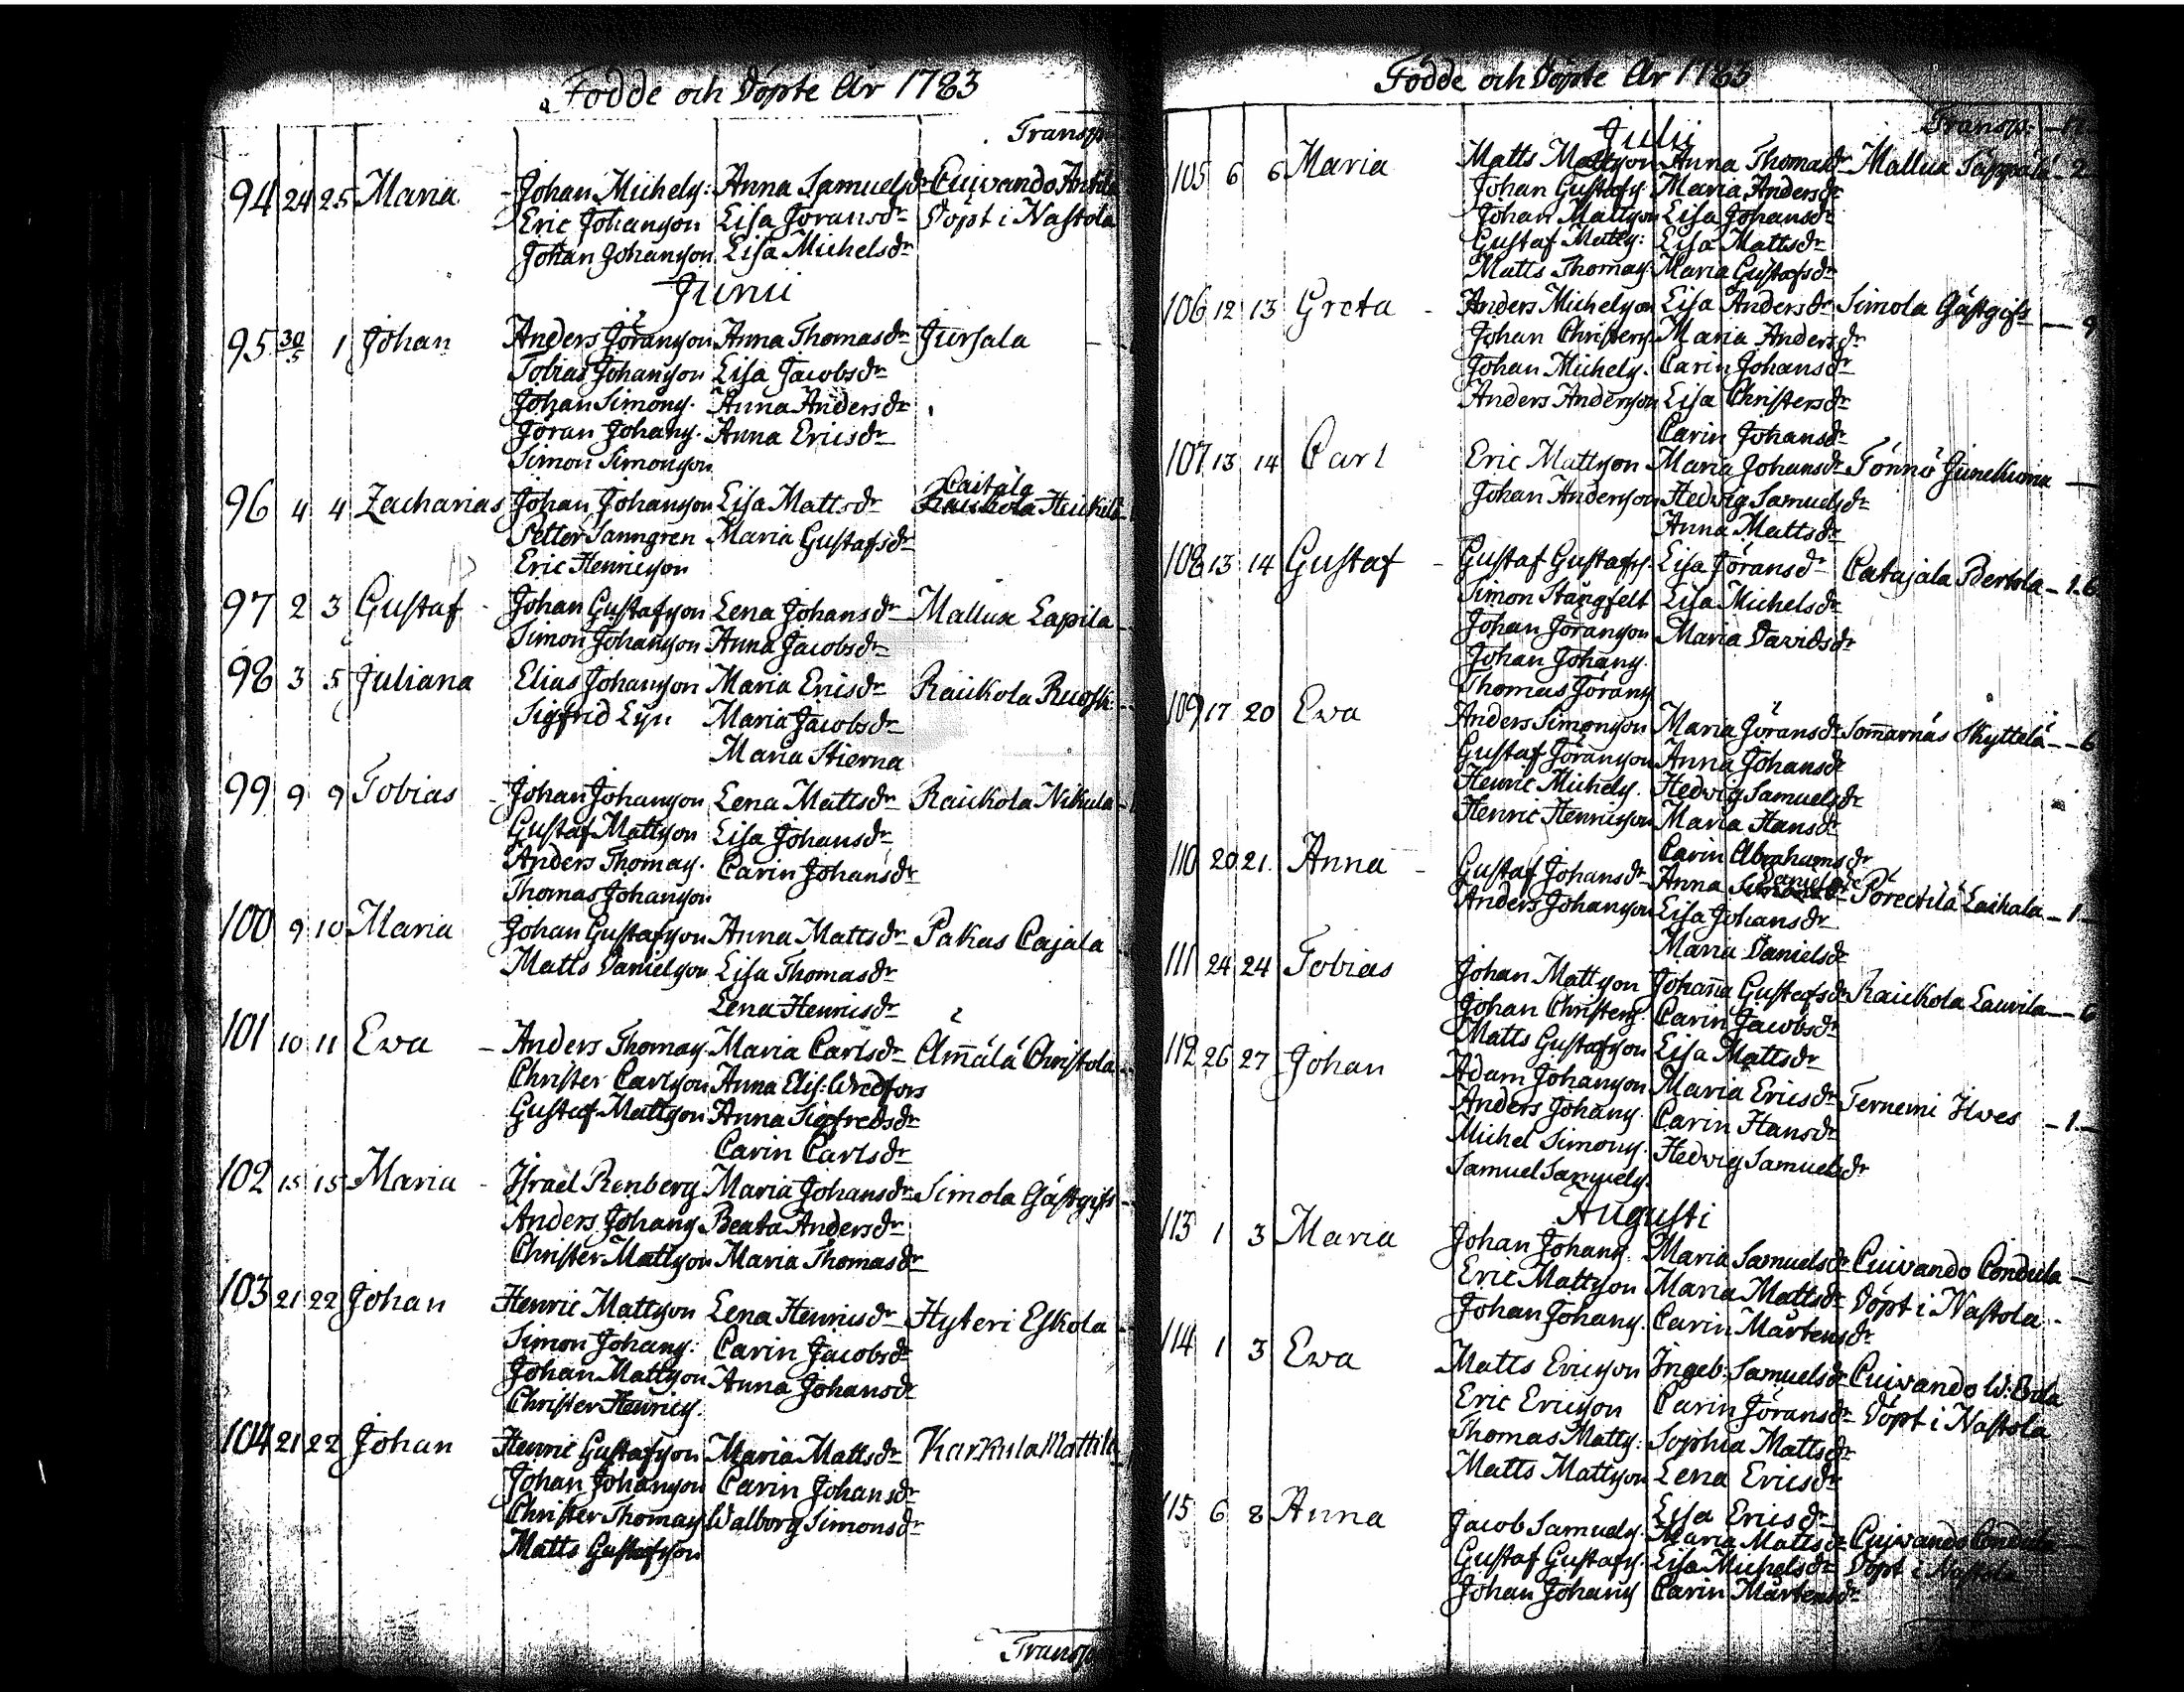 Födde och Döpte År 1783
Transp.
94 24 25 Maria - Johan Michels: Anna Samuelsdr Cuivando Anttila
Eric Johansson Lisa Göransdr Döpt i Nastola
Johan Johansson Lisa Michelsdr
Junii
95 30/5 1 Johan Anders Göransson Anna Thomasdr Jursala
Tobias Johansson Lisa Jacobsdr
Johan Simons. Anna Andersdr
Göran Johans. Anna Ericsdr
Simon Simonsson
Caitala
96 4 4 Zacharias Johan Johansson Lisa Mattsdr Heickilä
Petter Sanngren Maria Gustafsdr
Eric Henricsson
97 2 3 Gustaf - Johan Gustafsson Lena Johansdr Mallux Lapila
Simon Johansson Anna Jacobsdr
98 3 5 Juliana Elias Johansson Maria Ericsdr Raickola Ruosk:
Sigfrid Maria Jacobsdr
Maria Stierna
99 9 9 Tobias - Johan Johansson Lena Mattsdr Raickola Nikula
Gustaf Mattsson Lisa Johansdr
Anders Thomas. Carin Johansdr
Thomas Johansson
100 9 10 Maria Johan Gustafsson Anna Mattsdr Pakas Cajala
Matts Danielsson Lisa Thomasdr
Lena Henricsdr
101 10 11 Ewa - Anders Thomas. Maria Carlsdr Christola
Christer Carlsson Anna Elis: Wredfors
Gustaf Mattsson Anna Sigfredsdr
Carin Carlsdr
102 15 15 Maria - Israel Renberg Maria Johansdr Simola Gästgifv
Anders Johans Beata Andersdr
Christer Mattsson Maria Thomasdr
103 21 22 Johan Henric Mattsson Lena Henricsdr Hyteri Eskola
Simon Johans: Carin Jacobsdr
Johan Mattsson Anna Johansdr
Christer Henrics.
104 21 22 Johan Henric Gustafsson Maria Mattsdr Karkula Mattila
Johan Johansson Carin Johansdr
Christer Thomas Walborg Simonsdr
Matts Gustafsson
Transp
Födde och Döpte År 1783
Julii Transp.
105 6 6 Maria Matts Mattsson Anna Thomasdr Mallux Säppälä - 2
Johan Gustafs. Maria Andersdr
Johan Mattsson Lisa Johansdr
Gustaf Matts: Lisa Mattsdr
Matts Thomas. Maria Gustafsdr
106 12 13 Greta - Anders Michelsson Lisa Andersdr Simola Gästgifv - 9
Johan Christers. Maria Andersdr
Johan Michels. Carin Johansdr
Anders Andersson Lisa Christersdr
Carin Johansdr
107 13 14 Carl Eric Mattsson Maria Johansdr Tönnö
Johan Andersson Hedwig Samuelsdr
Anna Mattsdr
108 13 14 Gustaf - Gustaf Gustafss. Lisa Göransdr Catajala Pertola - 1.6
Simon Stångfelt Lisa Michelsdr
Johan Göransson Maria Davidsdr
Johan Johans.
Thomas Görans
109 17 20 Ewa Anders Simonsson Maria Göransdr Som̄arnäs Skyttälä - 6
Gustaf Göransson Anna Johansdr
Henric Michels. Hedwig Samuelsdr
Henric Henricsson Maria Hansdr
Carin Abrahamsdr
Danielsdr
110 20 21. Anna - Gustaf Johansdr Anna Laihala - 1 -
Anders Johansson Lisa Johansdr
Maria Danielsdr
111 24 24 Tobias Johan Mattsson Johan̄a Gustafsdr Raickola Laurila - 6
Johan Christers. Carin Jacobsdr
Matts Gustafsson Lisa Mattsdr
112 26 27 Johan Adam Johansson Maria Ericsdr Ternemi Ilves - 1. -
Anders Johans. Carin Hansdr
Michel Simons. Hedwig Samuelsdr
Samuel Samuels.
Augusti
113 1 3 Maria Johan Johans. Maria Samuelsdr Cuivando Condula -
Eric Mattsson Maria Mattsdr Döpt i Nastola
Johan Johans. Carin Mårtensdr
114 1 3 Ewa Matts Ericsson Ingeb: Samuelsdr Cuivando W: Erola
Eric Ericsson Carin Göransdr Döpt i Nastola
Thomas Matts: Sophia Mattsdr
Matts Mattsson Lena Ericsdr
Lisa Ericsdr
115 6 8 Anna Jacob Samuels. Maria Mattsdr Cuivando Condula
Gustaf Gustafs. Lisa Michelsdr Döpt i Nastola
Johan Johans Carin Mårtensdr